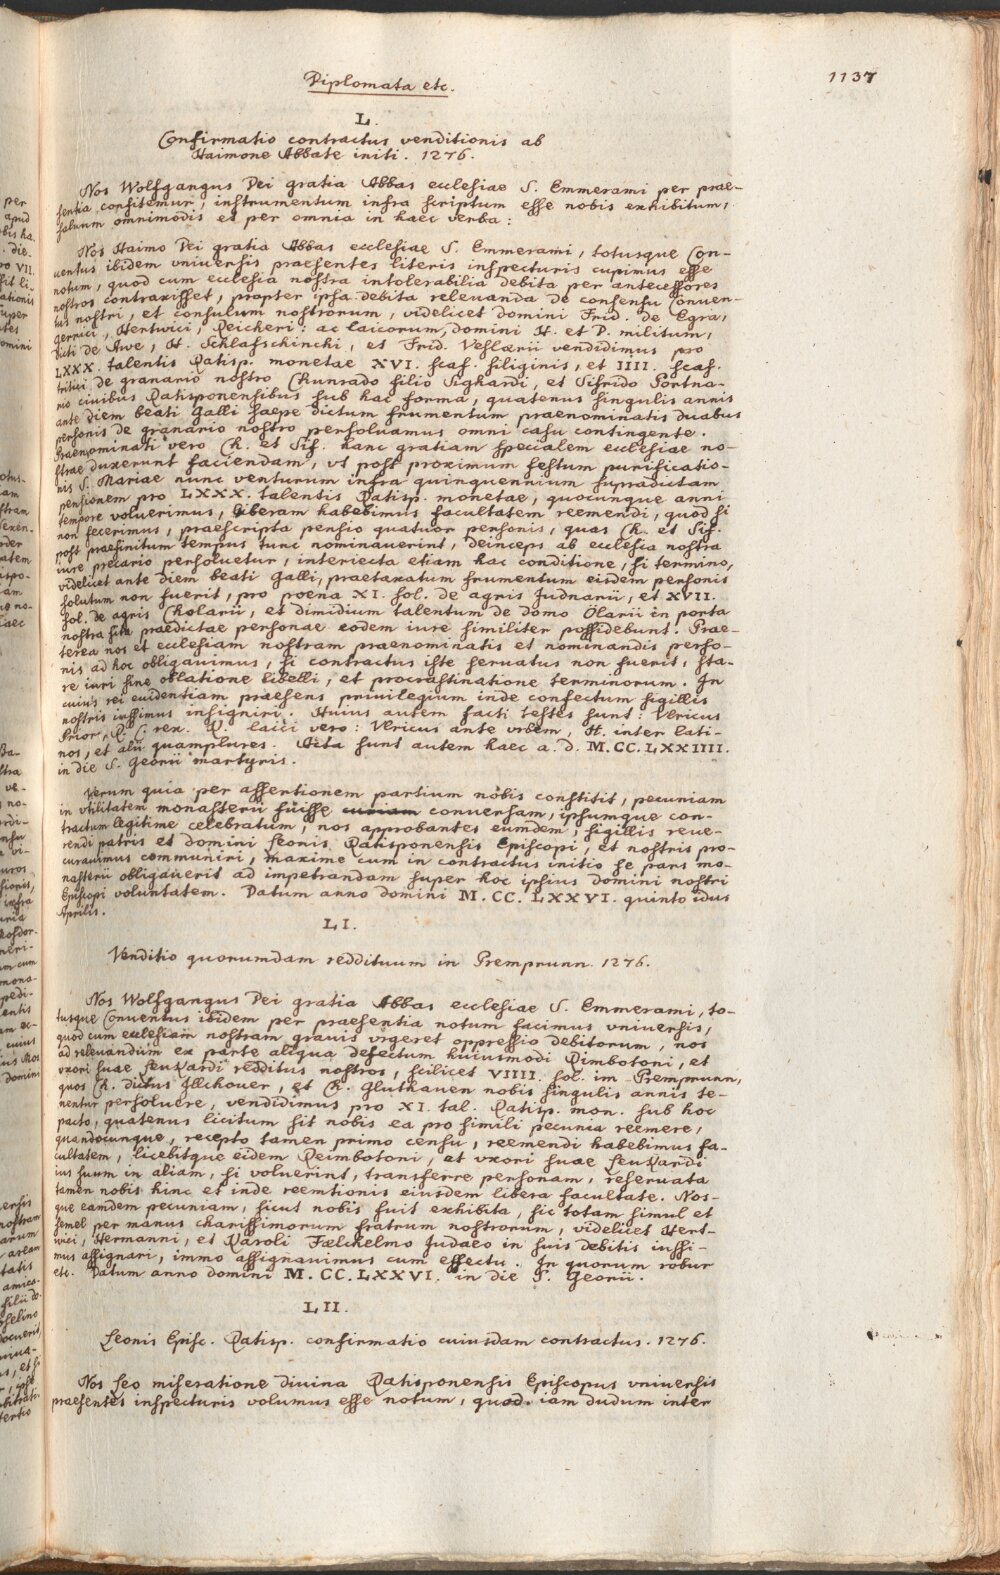 Diplomata etc.
1137
L.
Confirmatio contractus venditionis ab
Haimone Abbate initi. 1276.
Nos Wolfgangus Dei gratia Abbas ecclesiae S. Emmerami per prae-
sentia confitemur, instrumentum infra scriptum esse nobis exhibitum,
salvum omnimodis et per omnia in haec verba:
Nos Haimo Dei gratia Abbas ecclesiae S. Emmerami, totusque Con-
uentus ibidem vniuersis praesentes literis inspecturis cupimus esse
notum, quod cum ecclesia nostra intolerabilia debita per antecessores
nostros contraxisset, propter ipsa debita releuanda de consensu Conuen-
tus nostri, et consulum nostrorum, videlicet domini Frid. de Egra,
gerrici, Hertwici, Reicheri: ac laicorum, domini H. et P. militum,
dicti de Awe, H. Schlafschinchi, et Frid. Veslarii vendidimus pro
LXXX. talentis Ratisp. monetae XVI. scaf. siliginis, et IIII. scaf.
tritici de granario nostro Chunrado filio Sighardi, et Sifrido Portna-
rio ciuibus Ratisponensibus sub hac forma, quatenus singulis annis
ante diem beati Galli saepe dictum frumentum praenominatis duabus
personis de granario nostro persoluamus omni casu contingente.
Praenominati vero Ch. et Sif. hanc gratiam specialem ecclesiae no-
strae duxerunt faciendam, vt post proximum festum purificatio-
nis S. Mariae nunc venturum infra quinquennium supradictam
pensionem pro LXXX. talentis Ratisp. monetae, quocunque anni
tempore voluerimus, liberam habebimus facultatem reemendi, quod si
non fecerimus, praescripta pensio quatuor personis, quas Ch. et Sif.
post praefinitum tempus tunc nominauerint, deinceps ab ecclesia nostra
iure precario persoluetur, interiecta etiam hac conditione, si termino,
videlicet ante diem beati Galli, praetaxatum frumentum eisdem personis
solutum non fuerit, pro poena XI. sol. de agris Judnarii, et XVII.
sol. de agris Cholarii, et dimidium talentum de domo Olarii in porta
nostra sita praedictae personae eodem iure similiter possidebunt. Prae-
terea nos et ecclesiam nostram praenominatis et nominandis perso-
nis ad hoc obligauimus, si contractus iste seruatus non fuerit, sta-
re iuri sine oblatione libelli, et procrastinatione terminorum. In
cuius rei euidentiam praesens priuilegium inde confectum sigillis
nostris iussimus insigniri. Huius autem facti testes sunt: Vlricus
Prior, R. C. rex. R. laici vero: Vlricus ante vrbem, H. inter lati-
nos, et alii quamplures. Acta sunt autem haec a. d. M.CC.LXXIIII.
in die S. Georii martyris.
Verum quia per assertionem partium nobis constitit, pecuniam
in vtilitatem monasterii fuisse conuersam, ipsumque con-
tractum legitime celebratum, nos approbantes eumdem, sigillis reue-
rendi patris et domini Leonis Ratisponensis Episcopi, et nostris pro-
curauimus communiri, maxime cum in contractus initio se pars mo-
nasterii obligauerit ad impetrandam super hoc ipsius domini nostri
Episcopi voluntatem. Datum anno domini M.CC. LXXVI. quinto idus
Aprilis.
LI.
Venditio quorumdam reddituum in Premprunn. 1276.
Nos Wolfgangus Dei gratia Abbas ecclesiae S. Emmerami, to-
tusque Conuentus ibidem per praesentia notum facimus vniuersis,
quod cum ecclesiam nostram grauis vrgeret oppressio debitorum, nos
ad releuandum ex parte aliqua defectum huiusmodi Rimbotoni, et
vxori suae Leukardi redditus nostros, scilicet VIIII. sol. im Premprunn,
quos Ch. dictus Ilchouer, et Ch. Gluthauen nobis singulis annis te-
nentur persoluere, vendidimus pro XI. tal. Ratisp. mon. sub hoc
pacto, quatenus licitum sit nobis ea pro simili pecunia reemere,
quandocunque, recepto tamen primo censu, reemendi habebimus fa-
cultatem, licebitque eidem Reimbotoni, et vxori suae Leukardi
ius suum in aliam, si voluerint, transferre personam, reseruata
tamen nobis hinc et inde reemtionis eiusdem libera facultate. Nos-
que eamdem pecuniam, sicut nobis fuit exhibita, sic totam simul et
semel per manus charissimorum fratrum nostrorum, videlicet Hert-
wici, Hermanni, et Karoli Fælckelmo Judaeo in suis debitis iussi-
mus assignari, immo assignauimus cum effectu. In quorum robur
etc. Datum anno domini M.CC.LXXVI. in die S. Georii.
LII.
Leonis Episc. Ratisp. confirmatio cuiusdam contractus. 1276.
Nos Leo miseratione diuina Ratisponensis Episcopus vniuersis
praesentes inspecturis volumus esse notum, quod iam dudum inter